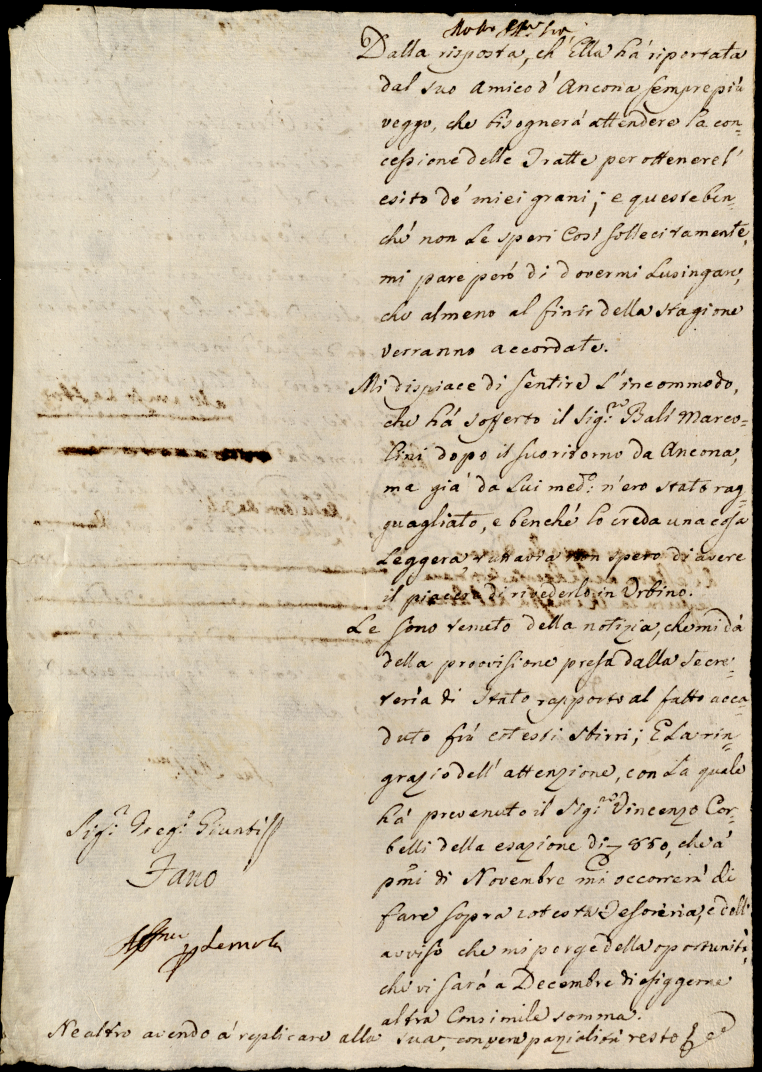 Molto Ill.re Sig.re
Dalla risposta, ch'Ella há riportata
dal suo Amico d'Ancona sempre più
veggo, che bisognerá attendere la con-
cessione delle Tratte per ottenere l'
esito de' miei grani; e queste ben-
ché non Le speri Così sollecitamente,
mi pare però di dovermi Lusingare,
che almeno al finir della stagione
verranno accordate.
Mi dispiace di sentire L'incommodo,
che há sofferto il Sig.re Balì Marco-
lini dopo il suo ritorno da Ancona,
ma giá da Lui med.o n'ero stato rag-
guagliato, e benché lo creda una cosa
Leggera, tuttavia non spero di avere
il piacere di rivederlo in Urbino.
Le sono tenuto della notizia, che mi dà
della provisione presa dalla Secre-
teria di Stato rapporto al fatto acca-
duto frá cotesti sbirri; E La rin-
grazio dell'attenzione, con La quale
há prevenuto il Sig.re Vincenzo Cor-
belli della esazione di 860, che a'
pmi di Novembre mi occorrerà di
fare sopra cotesta Tesoreria, e dell'
avviso che mi porge della opportunità,
che vi sará a Decembre di esiggerne
altra Consimile somma.
Sig.r Greg.o Giunti
Fano
Ne altro avendo á replicare alla sua, con vera parzialità resto